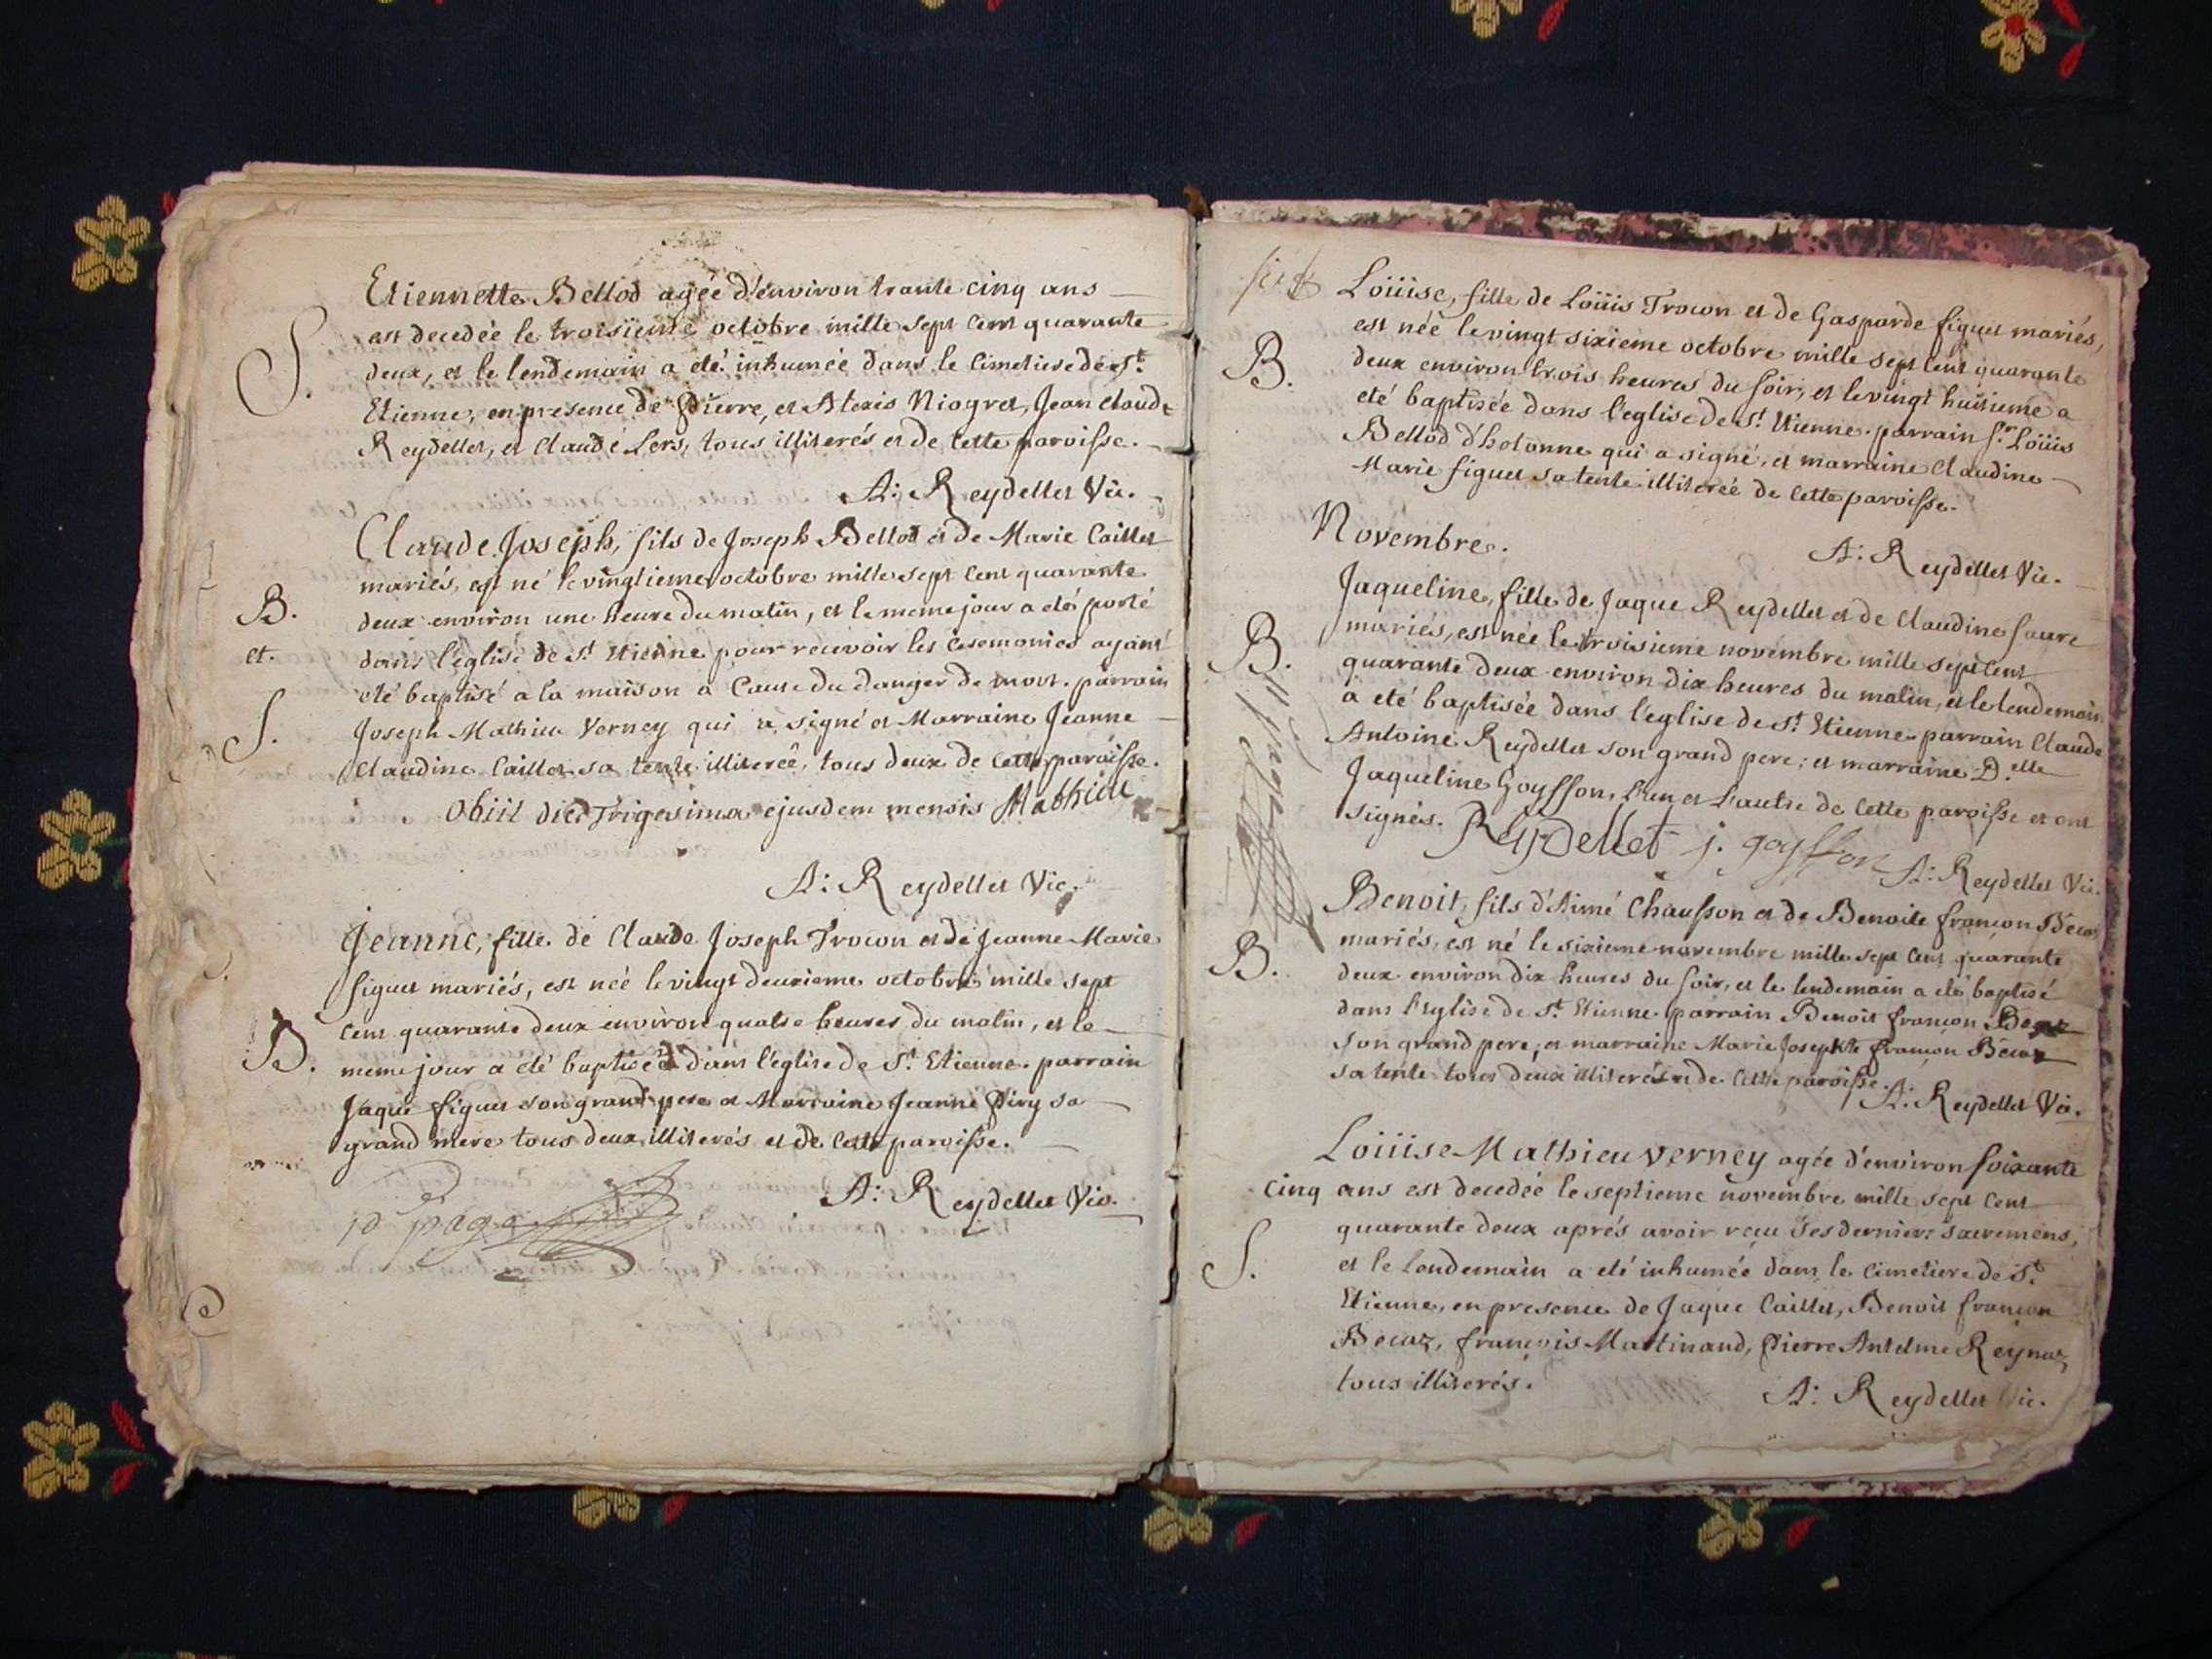 Etiennette Bellod agée d'environ trante cinq ans
est decedée le troisiéme octobre mille sept cent quarante
S. deux, et le lendemain a eté inhumée dans le cimetiere de St.
Etienne, en presence de Pierre, et Alexis Niogret, Jean claude
Reydellet, et Claude Lers, tous illiterés et de cette paroisse.
A: Reydellet Vic.
Claude Joseph, fils de Joseph Bellod et de Marie Caillet
mariés, est né le vingtieme octobre mille sept cent quarante
B. deux environ une heure du matin, et le meme jour a eté porté
et. dans l'église de St. Etienne pour recevoir les ceremonies ayant
eté baptisé a la maison a cause du danger de mort. parrain
S. Joseph Mathieu Verney qui a signé et Marraine Jeanne
Claudine Caillet sa tente illiterée, tous deux de cette paroisse.
Obiit die Trigesima ejusdem mensis Mathieu
A: Reydellet Vic.
Jeanne, fille de Claude Joseph Trocon et de Jeanne Marie
figuet mariés, est née le vingt deuxieme octobre mille sept
cent quarante deux environ quatre heures du matin, et le
B. meme jour a eté baptisée dans l'église de St. Etienne. parrain
Jaque figuet son grand pere et Marraine Jeanne Piry sa
grand mere tous deux illiterés et de cette paroisse.
A: Reydellet Vic.
10 page
Loüise, fille de Loüis Trocon et de Gasparde figuet mariés,
est née le vingt sixieme octobre mille sept cent quarante
B. deux environ trois heures du soir, et le vingt huitieme a
eté baptisée dans l'eglise de St. Etienne. parrain Sr. Loüis
Bellod d'hotonne qui a signé, et marraine Claudine
Marie figuet sa tente illiterée de cette paroisse.
Novembre.
A: Reydellet Vic.
Jaqueline, fille de Jaque Reydellet et de Claudine faure
B. mariés, est née le troisieme novembre mille sept cent
quarante deux environ dix heures du matin, et le lendemain
a eté baptisée dans l'eglise de St. Etienne parrain Claude
Antoine Reydellet son grand pere; et marraine D.elle
Jaqueline Goysson, l'un et l'autre de cette paroisse et ont
signés. Reydellet j. goysson
A: Reydellet Vic.
11 page
Benoit, fils d'Aimé Chausson et de Benoite françon Becaz
mariés, est né le sixieme novembre mille sept cent quarante
B. deux environ dix heures du soir, et le lendemain a eté baptisé
dans l'eglise de St. Etienne parrain Benoit françon Becaz
son grand pere, et marraine Marie Josephte françon Becaz
sa tente tous deux illiterés et de cette paroisse.
A: Reydellet Vic.
Loüise Mathieu verney agée d'environ soixante
cinq ans est decedée le septieme novembre mille sept cent
quarante deux aprés avoir reçu ses derniers sacremens,
S. et le lendemain a eté inhumée dans le cimetiere de St.
Etienne, en presence de Jaque Caillet, Benoit françon
Becaz, françois Martinand, Pierre Antelme Reynaz,
tous illiterés.
A: Reydellet Vic.